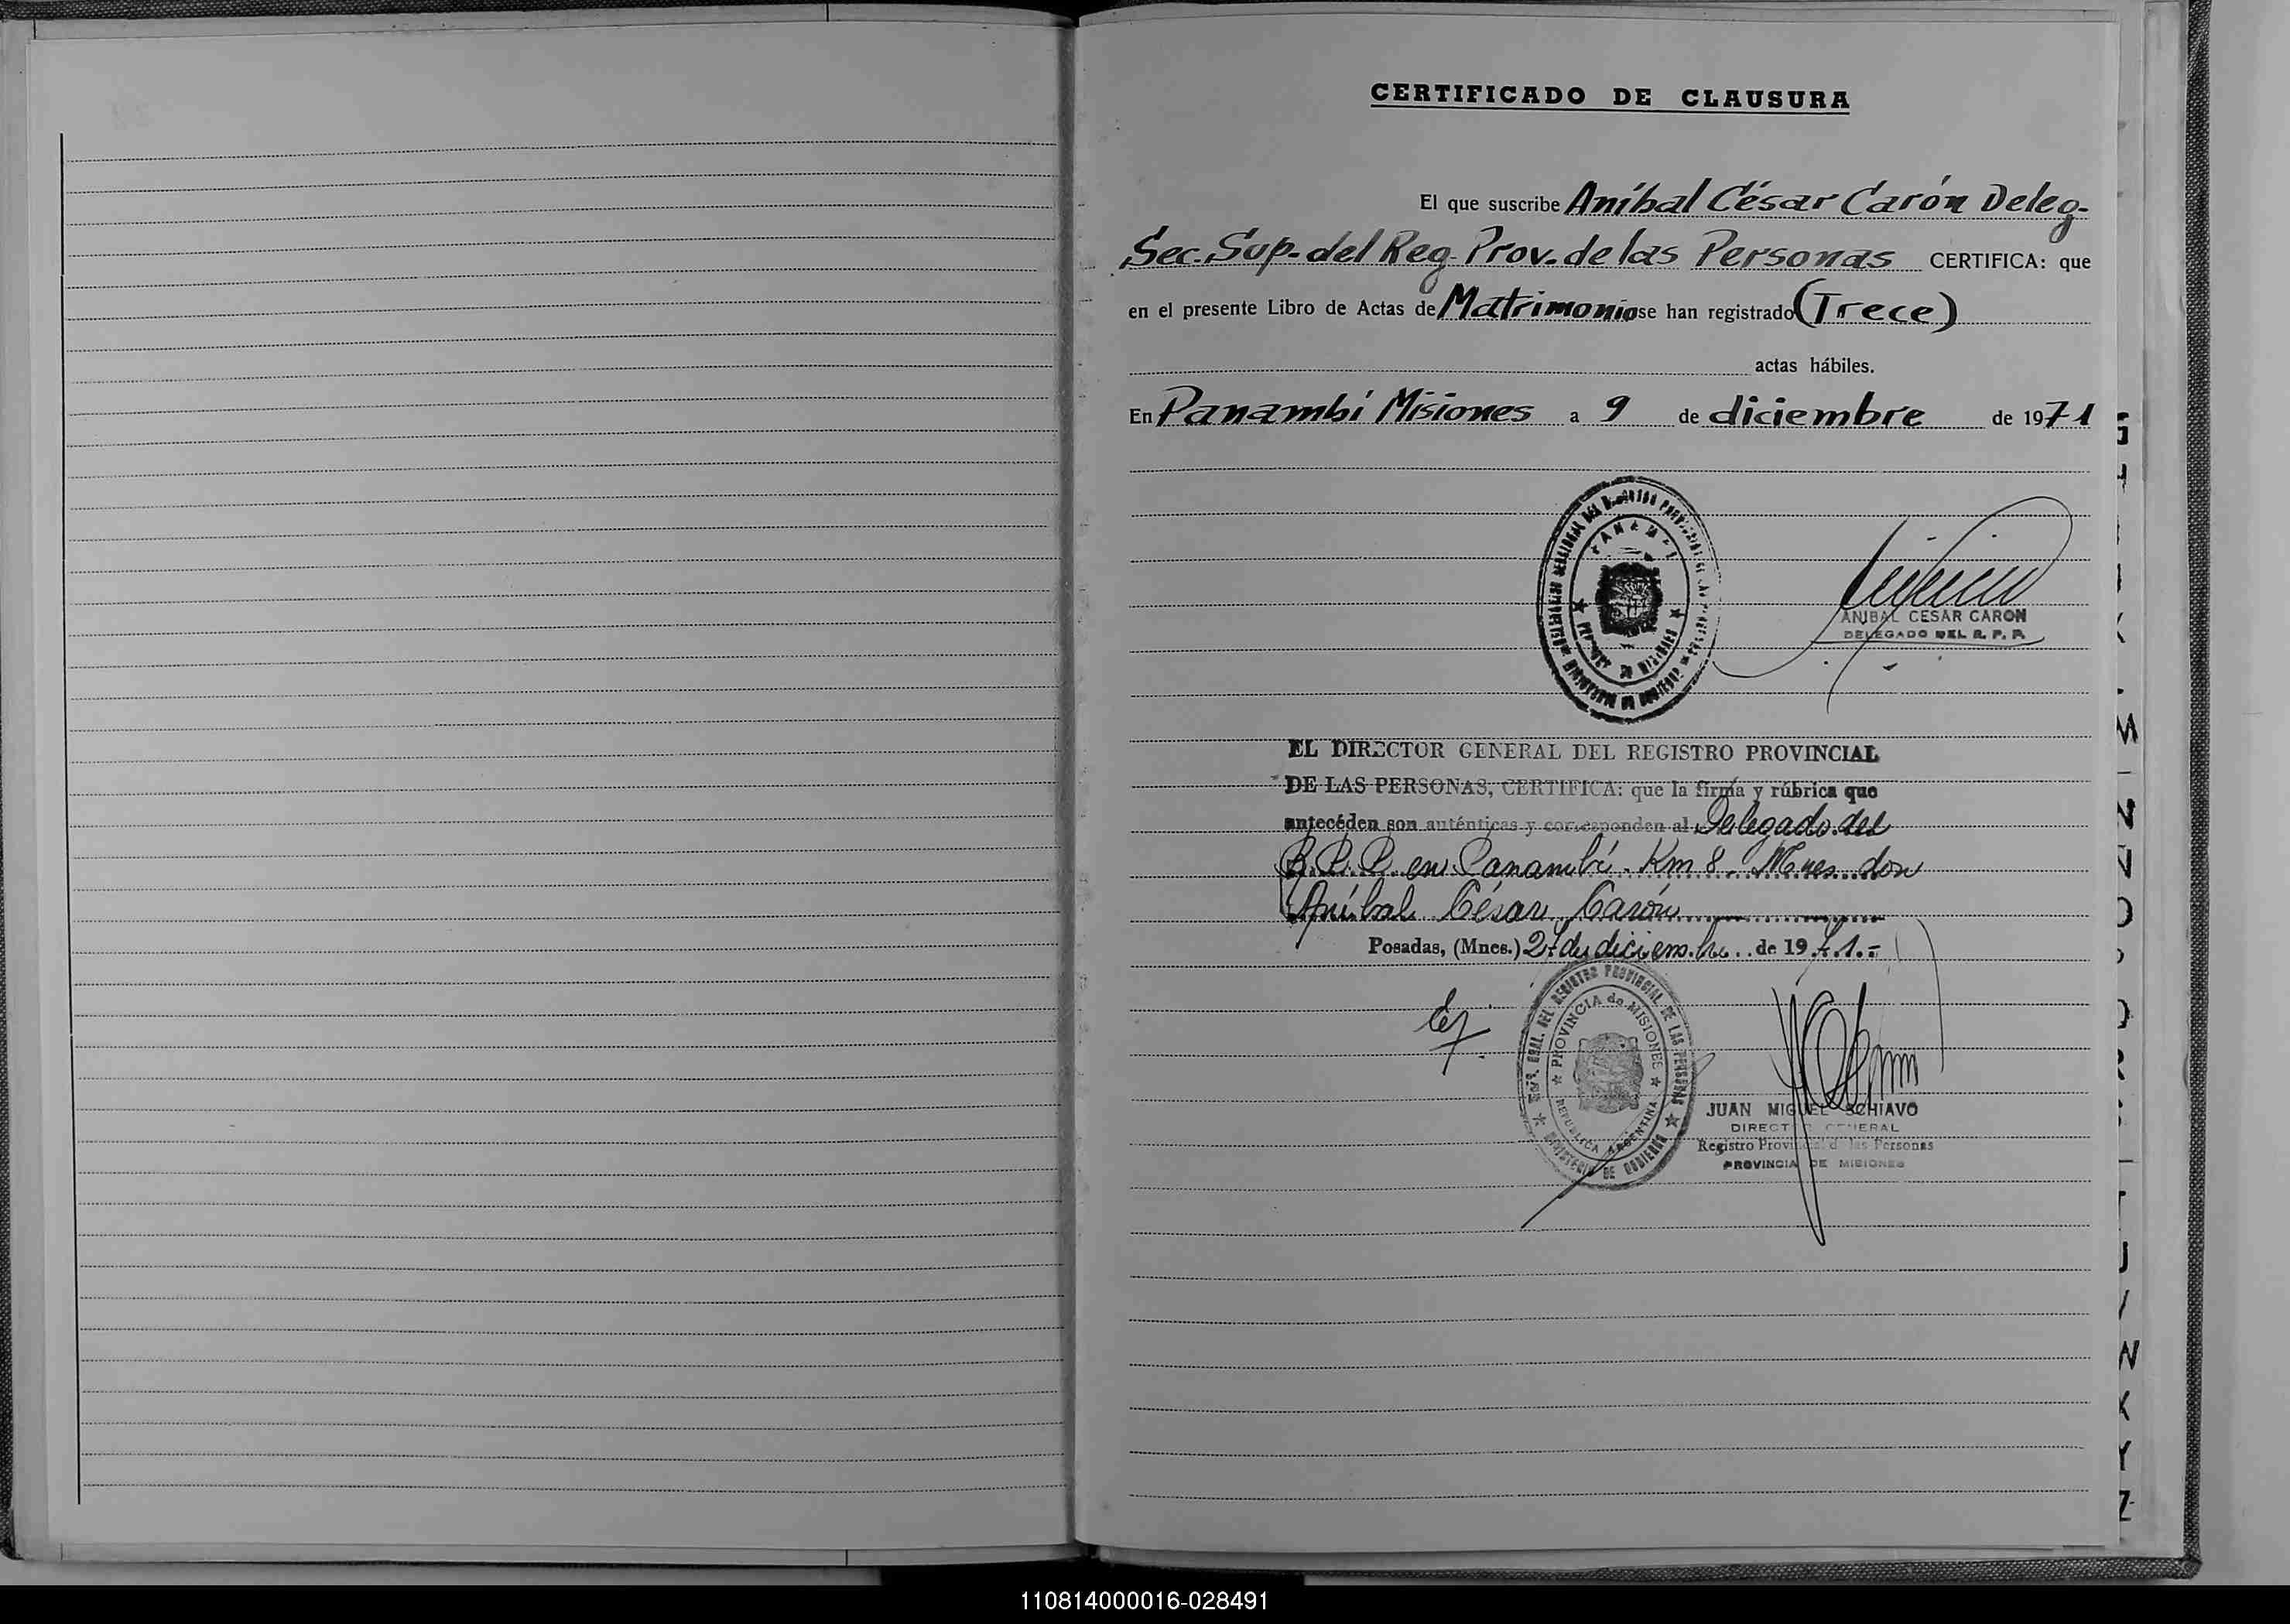 CERTIFICADO DE CLAUSURA
El que suscribe Aníbal César Carón Deleg-
Sec. Sup. del Reg. Prov. de las Personas CERTIFICA: que
en el presente Libro de Actas de Matrimonio se han registrado (Trece)
actas hábiles.
En Panambí Misiones a 9 de diciembre de 1971
PANAMBI
ANIBAL CESAR CARON
DELEGADO DEL R. P. P.
EL DIRECTOR GENERAL DEL REGISTRO PROVINCIAL
DE LAS PERSONAS, CERTIFICA: que la firma y rúbrica que
antecéden son auténticas y corresponden al Delegado del
R. P. P. en Panambí - Km 8. Mnes. don
Aníbal César Carón
Posadas, (Mnes.) 27 de diciembre de 1971.-
GRAL. DEL REGISTRO PROVINCIAL DE LAS PERSONAS
PROVINCIA de MISIONES
REPUBLICA ARGENTINA
MINISTERIO DE GOBIERNO
JUAN MIGUEL SCHIAVO
DIRECTOR GENERAL
Registro Provincial de las Personas
PROVINCIA DE MISIONES
110814000016-028491